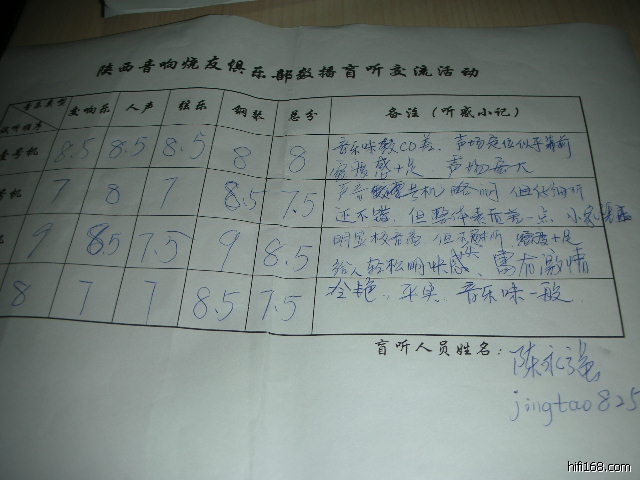 陕西音响烧友俱乐部数播盲听交流活动
音乐类型 交响乐 人声 弦乐 钢琴 总分 备注（听感小记）
试听编号
壹号机 8.5 8.5 8.5 8 8 音乐味较CD差、声场定位似乎靠前
密度感十足 声场最大
号机 7 8 7 8.5 7.5 但仔细听
还不错，但整体表 一点
9 8.5 7.5 9 8.5 明显 但 十足
给人轻松明快感、富有激情
8 7 7 8.5 7.5 冷艳、平实、音乐味一般
盲听人员姓名：陈永强
jingtao825
hifi168.com